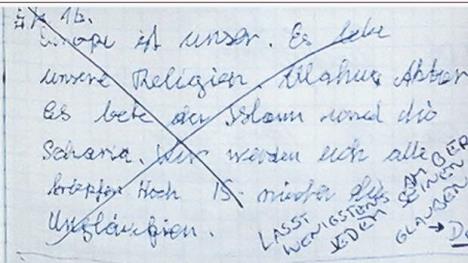 16.
Europa ist unser. Es lebe
unsere Religion. Allahu Akber
Es lebe der Islam und die
Scharia. Wir werden euch alle
köpfen Hoch IS. nieder die
Ungläubigen.
LASST
WENIGSTENS
JEDEM
AMBER
SEINEN
GLAUBEN